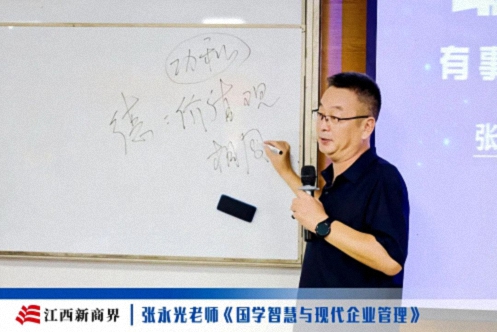 功利
德：价值观
相同
有事
张
江西新商界
张永光老师《国学智慧与现代企业管理》